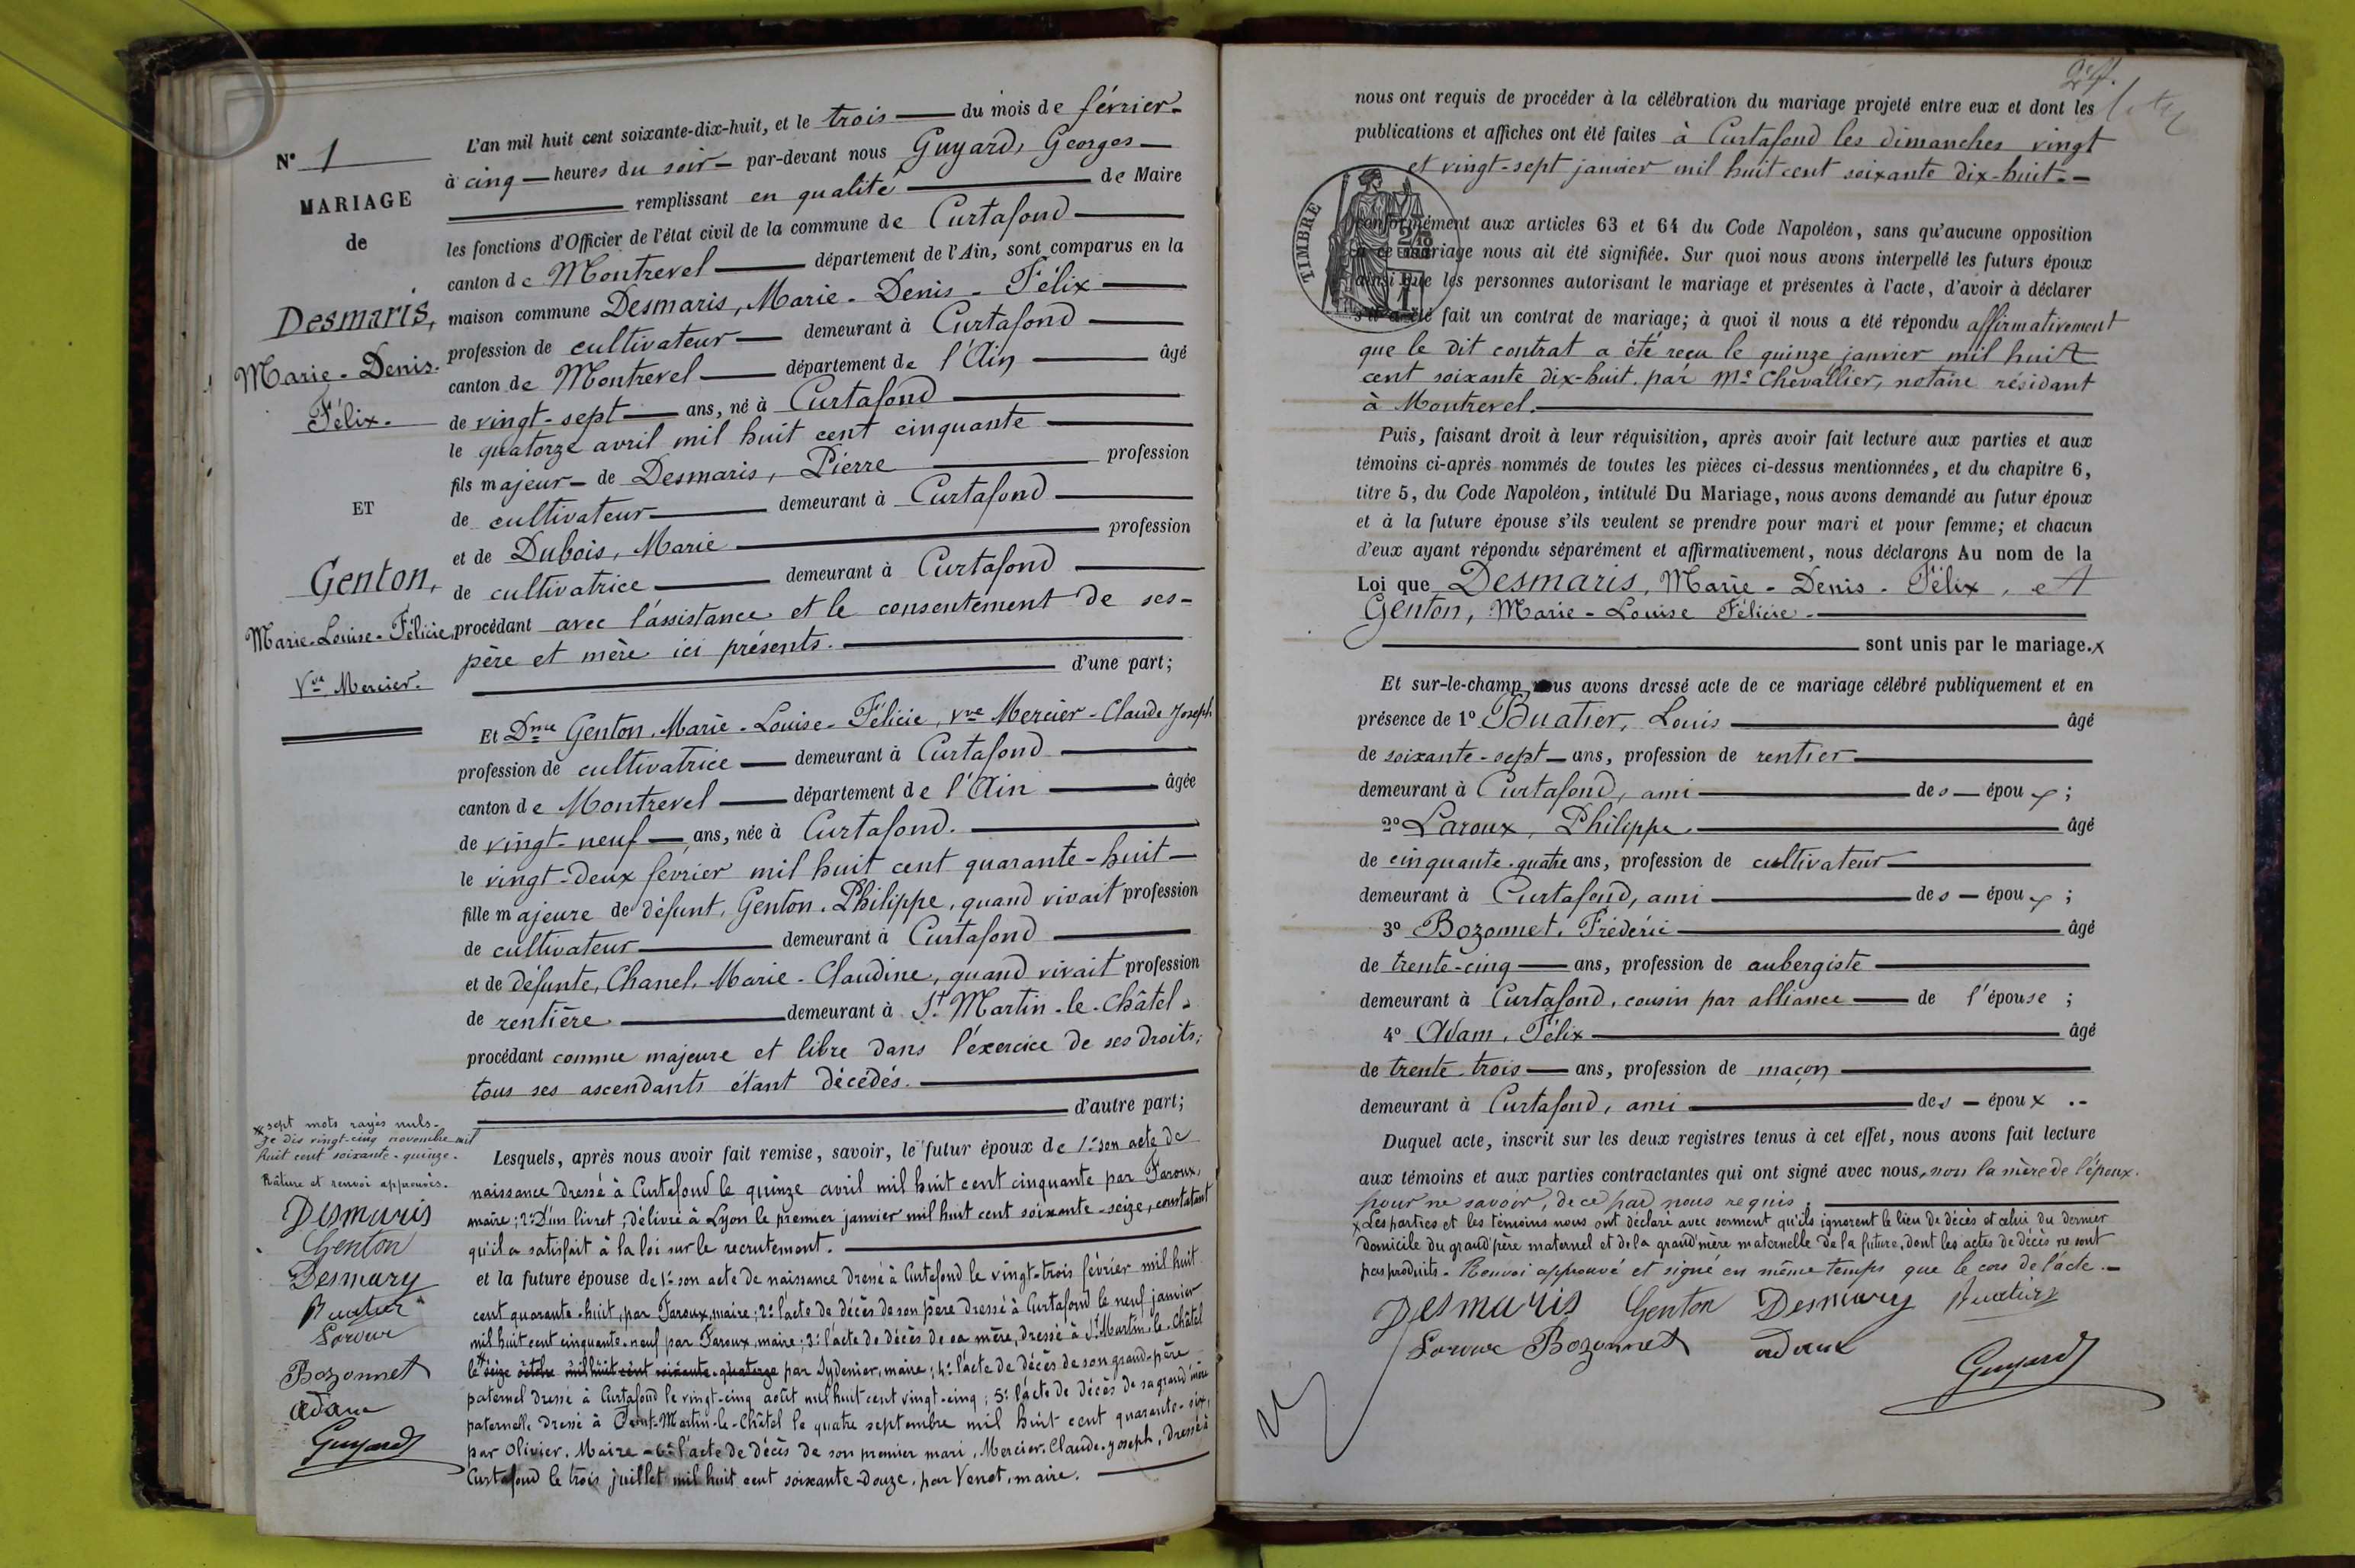 N° 1
MARIAGE
de
Desmaris,
Marie-Denis-
Félix.
ET
Genton,
Marie-Louise-Félicie,
Vve Mercier.
L'an mil huit cent soixante-dix-huit, et le trois du mois de février-
à cinq heures du soir - par-devant nous Guyard, Georges
remplissant en qualité de Maire
les fonctions d'Officier de l'état civil de la commune de Curtafond
canton de Montrevel département de l'Ain, sont comparus en la
maison commune Desmaris, Marie-Denis-Félix
profession de cultivateur demeurant à Curtafond
canton de Montrevel département de l'Ain âgé
de vingt-sept ans, né à Curtafond
le quatorze avril mil huit cent cinquante
fils majeur de Desmaris, Pierre profession
de cultivateur demeurant à Curtafond
et de Dubois, Marie profession
de cultivatrice demeurant à Curtafond
procédant avec l'assistance et le consentement de ses-
père et mère ici présents.
d'une part;
Et Dme Genton, Marie-Louise-Félicie, Vve Mercier-Claude Joseph
profession de cultivatrice demeurant à Curtafond
canton de Montrevel département de l'Ain âgée
de vingt-neuf ans, née à Curtafond.
le vingt-deux février mil huit cent quarante-huit
fille majeure de défunt, Genton, Philippe, quand vivait profession
de cultivateur demeurant à Curtafond
et de défunte, Chanel, Marie-Claudine, quand vivait profession
de rentière demeurant à St Martin-le-Châtel
procédant comme majeure et libre dans l'éxercice de ses droits;
tous ses ascendants étant décédés.
d'autre part;
Lesquels, après nous avoir fait remise, savoir, le futur époux de 1° son acte de
naissance dressé à Curtafond le quinze avril mil huit cent cinquante par Faroux,
maire; 2° D'un livret, délivré à Lyon le premier janvier mil huit cent soixante-seize, constatant
qu'il a satisfait à la loi sur le recrutement.
et la future épouse de 1° son acte de naissance dressé à Curtafond le vingt-trois février mil huit
cent quarante-huit, par Faroux, maire; 2° l'acte de décès de son père dressé à Curtafond le neuf janvier
mil huit cent cinquante-neuf par Faroux, maire; 3° l'acte de décès de sa mère, dressé à St Martin-le-Châtel
le seize octobre mil huit cent soixante-quatorze par Sydenier, maire; 4° l'acte de décès de son grand-père
paternel dressé à Curtafond le vingt-cinq août mil huit cent vingt-cinq; 5° l'acte de décès de sa grand'mère
paternelle dressé à Saint-Martin-le-Châtel le quatre septembre mil huit cent quarante-six,
par Olivier, Maire - 6° l'acte de décès de son premier mari, Mercier, Claude-Joseph, dressé à
Curtafond le trois juillet mil huit cent soixante-douze, par Venot, maire.
x sept mots rayés nuls-
Je dis vingt-cinq novembre mil
huit cent soixante-quinze.
Râture et renvoi approuvés.
Desmaris
Genton
Desmary
Buatier
Bozonnet
adam
Guyard
nous ont requis de procéder à la célébration du mariage projeté entre eux et dont les
publications et affiches ont été faites à Curtafond les dimanches vingt
et vingt-sept janvier mil huit cent soixante dix-huit.
TIMBRE
conformément aux articles 63 et 64 du Code Napoléon, sans qu'aucune opposition
à ce mariage nous ait été signifiée. Sur quoi nous avons interpellé les futurs époux
ainsi que les personnes autorisant le mariage et présentes à l'acte, d'avoir à déclarer
s'il a été fait un contrat de mariage; à quoi il nous a été répondu affirmativement
que le dit contrat a été reçu le quinze janvier mil huit
cent soixante dix-huit par Me Chevallier, notaire résidant
à Montrevel.
Puis, faisant droit à leur réquisition, après avoir fait lecture aux parties et aux
témoins ci-après nommés de toutes les pièces ci-dessus mentionnées, et du chapitre 6,
titre 5, du Code Napoléon, intitulé Du Mariage, nous avons demandé au futur époux
et à la future épouse s'ils veulent se prendre pour mari et pour femme; et chacun
d'eux ayant répondu séparément et affirmativement, nous déclarons Au nom de la
Loi que Desmaris, Marie-Denis-Félix, et
Genton, Marie-Louise Félicie-
sont unis par le mariage. x
Et sur-le-champ nous avons dressé acte de ce mariage célébré publiquement et en
présence de 1° Buatier, Louis âgé
de soixante-sept ans, profession de rentier
demeurant à Curtafond, ami des époux;
2° Laroux, Philippe. âgé
de cinquante-quatre ans, profession de cultivateur
demeurant à Curtafond, ami des époux;
3° Bozonnet, Frédéric âgé
de trente-cinq ans, profession de aubergiste
demeurant à Curtafond, cousin par alliance de l'épouse;
4° Adam, Félix âgé
de trente-trois ans, profession de maçon
demeurant à Curtafond, ami des époux
Duquel acte, inscrit sur les deux registres tenus à cet effet, nous avons fait lecture
aux témoins et aux parties contractantes qui ont signé avec nous, non la mère de l'époux.
pour ne savoir, de ce par nous requis.
x Les parties et les témoins nous ont déclaré avec serment qu'ils ignorent le lieu de décès et celui du dernier
domicile du grand'père maternel et de la grand'mère maternelle de la future, dont les actes de décès ne sont
pas produits - Renvoi approuvé et signé en même temps que le cors de l'acte.
Desmaris Genton Desmary Buatier
Bozonnet adam
Guyard